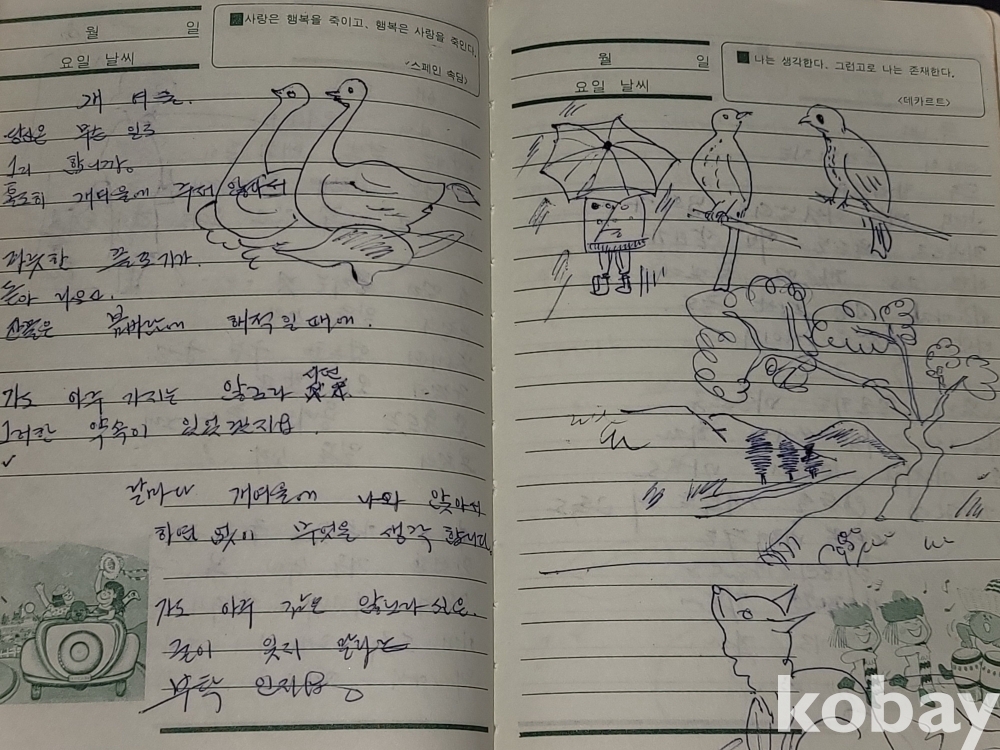 월 일
요일 날씨
사랑은 행복을 죽이고, 행복은 사랑을 죽인다.
<스페인 속담>
개 여울
당신은 무슨 일로
그리 합니까
홀로히 개여울에 주저 앉아서
파릇한 풀포기가
돋아 나오고
잔물은 봄바람에 해적일 때에.
가도 아주 가지는 않노라 시면
그러한 약속이 있었겠지요
날마다 개여울에 나와 앉아서
하염 없이 무엇을 생각 합니다
가도 아주 가지는
굳이 잊지 말라는
부탁 인지요
월 일
요일 날씨
나는 생각한다. 그런고로 나는 존재한다.
<데카르트>
kobay